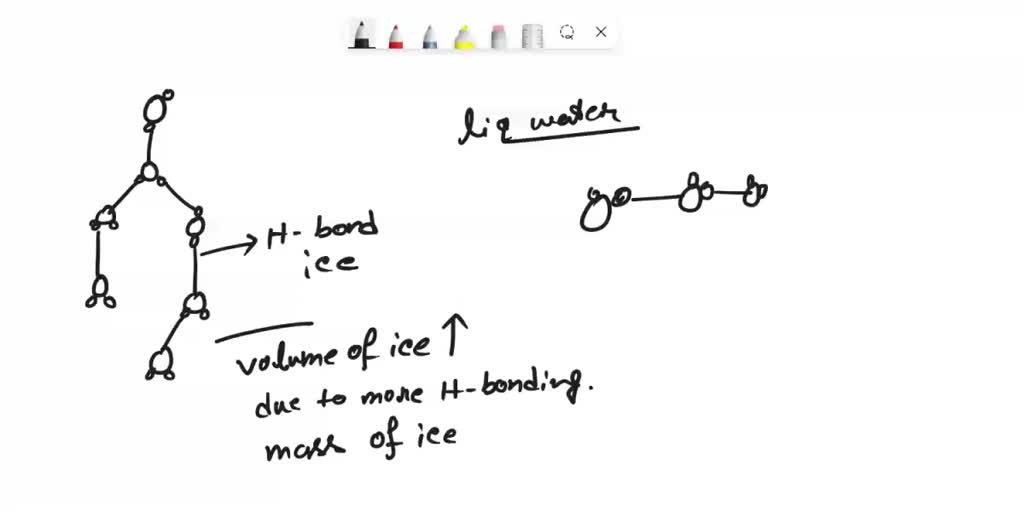 liq water
H-bond
ice
volume of ice ↑
due to more H-bonding.
mass of ice